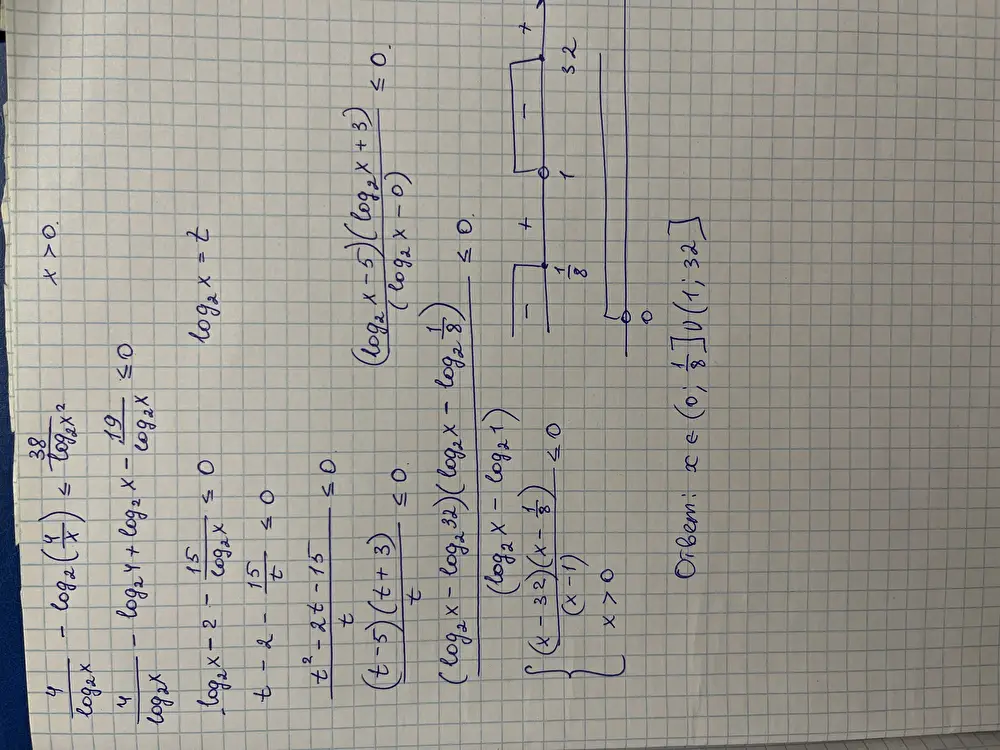 4/log₂x - log₂(4/x) ≤ 38/log₂x² x > 0.
4/log₂x - log₂4 + log₂x - 19/log₂x ≤ 0
log₂x - 2 - 15/log₂x ≤ 0 log₂x = t
t - 2 - 15/t ≤ 0
(t² - 2t - 15)/t ≤ 0
(t - 5)(t + 3)/t ≤ 0. (log₂x - 5)(log₂x + 3)/(log₂x - 0) ≤ 0.
(log₂x - log₂32)(log₂x - log₂1/8)/(log₂x - log₂1) ≤ 0.
{(x - 32)(x - 1/8)/(x - 1) ≤ 0
x > 0
- + - +
1/8 1 32
0
Ответ: x ∈ (0; 1/8] ∪ (1; 32]